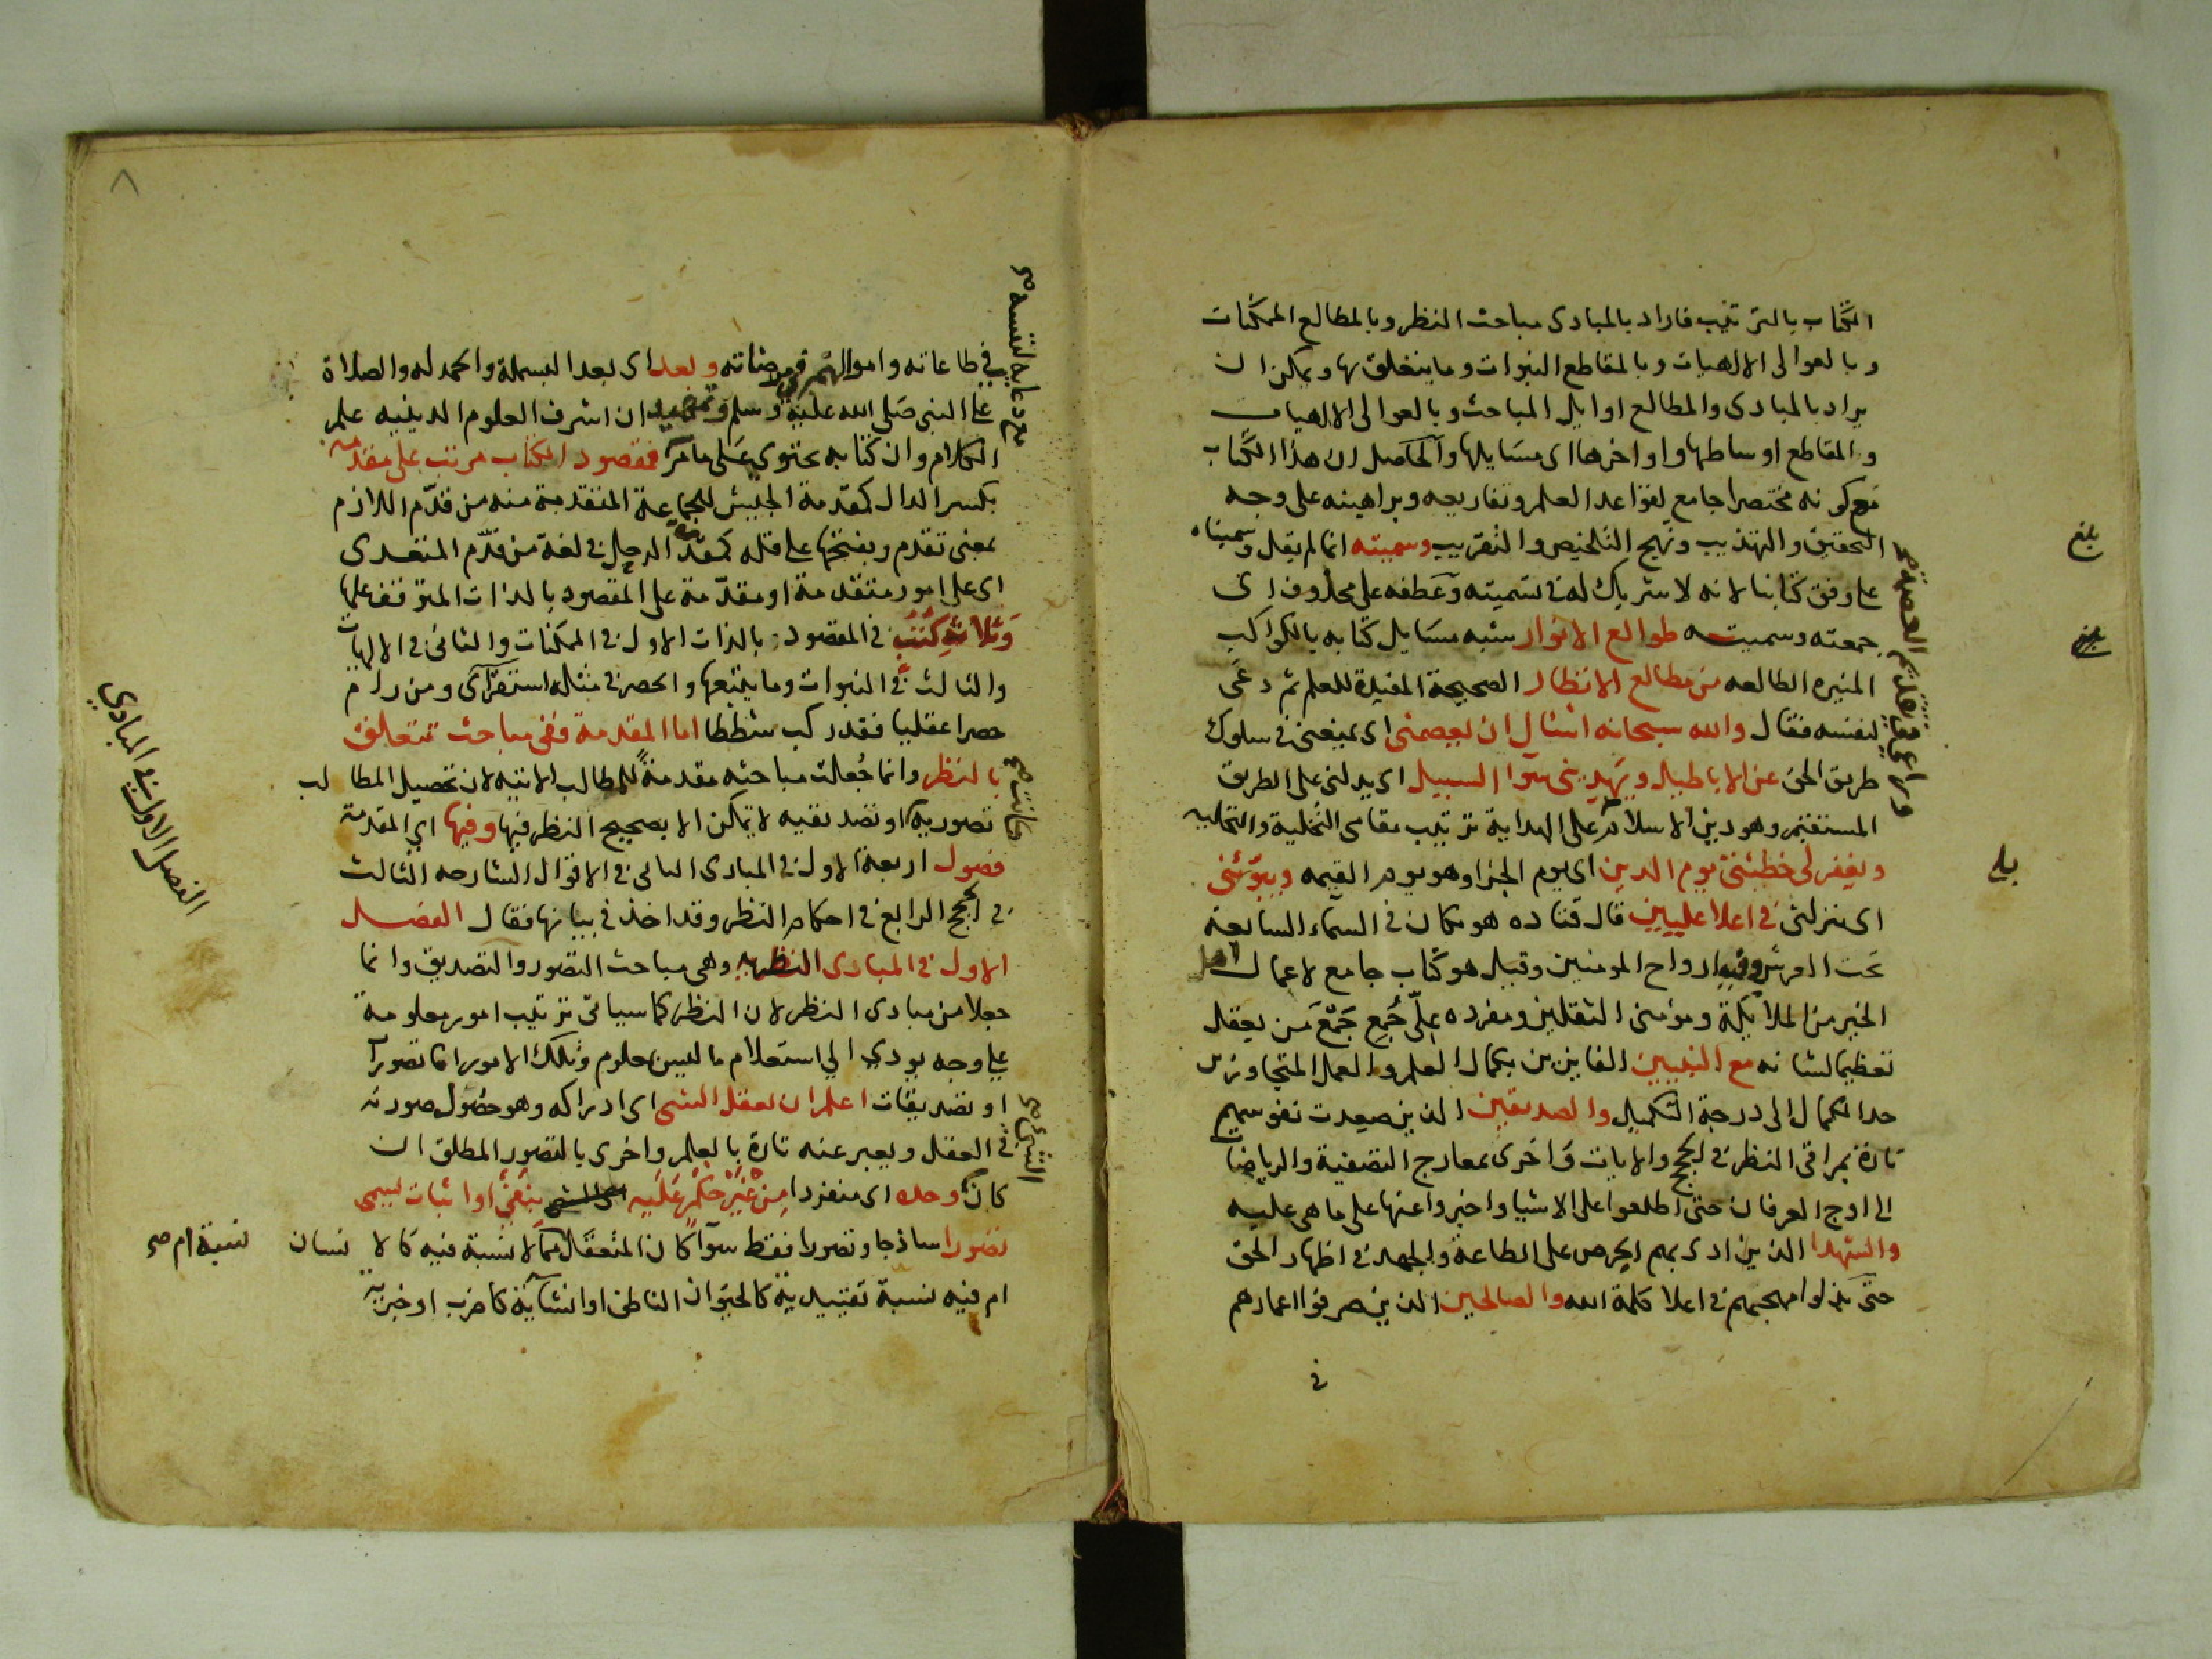 الكتاب بالترتيب فاراد بالمبادى مباحث النظر وبالمطالع الممكنات
وبالعوالى الالهيات وبالمقاطع النبوات وما يتعلق بها ويمكن ان
يراد بالمبادى والمطالع اوايل المباحث وبالعوالى الالهيات
والمقاطع اوساطها واواخرها اى مسَايلها والحَاصل ان هذا الكتاب
مَع كونه مختصرا جامع لقواعد العلم وتفاريعه وبراهينه على وجه
التحقيق والتهذيب ونهج التلخيص والتقريب وسميته انما لم يقل وسميناه
على وفق كتابنا لانه لا شريك له في تسميته وعَطفه على محذوف اى
جمعته وسميته طوالع الانوار شبه مسَايل كتابه بالكواكب
المنيره الطالعه من مطالع الانظار الصحيحة المفيدة للعلم ثم دعَى
لنفسه فقال والله سبحانه اسال ان يعصمنى اى يمنعنى في سلوك
طريق الحق عن الاباطيل ويهدينى سوا السبيل اى يدلنى على الطريق
المستقيم وهو دين الاسلام على الهداية ترتيب مقامى التخلية والتحليه
ويغفر لى خطيئتى يوم الدين اى يوم الجزا وهو يوم القيمه ويبوّئنى
اى ينزلنى في اعلا عليين قال قتاده هو مكان في السمآء السابعة
تحت العرش وفيه ارواح المومنين وقيل هو كتاب جامع لاعمال اهل
الخير من الملائكة ومؤمنى الثقلين ومفرده علّى جُمِع جَمْعَ مَن يعقل
تعظيما لشانه مع النبيين الفايزين بكمال العلم والعمل المتجاوزين
حد الكمال الى درجة التكميل والصديقين الذين صعدت نفوسهم
تارة بمراقى النظر في الحجج والايات وَاخرى بمعارج التصفية والرياضات
الى اوج العرفان حتى اطلعوا على الاشيا واخبروا عنها على ما هى عليه
والشهدا الذين ادى بهم الحرص على الطاعة والجهد في اظهار الحق
حتى بذلوا مهجهم في اعلا كلمة الله والصالحين الذين صرفوا اعمارهم
في
بلغ
بلغ
في طاعاته واموالهم في مرضاته وبعد اى بعد البسملة والحمد له والصلاة
على النبى صَلى الله عليه وسلم وتمهيد ان اشرف العلوم الدينيه علم
الكلام وان كتابه يحتوى عَلى مامرّ فمقصود الكتاب مرتب على مقدمة
بكسر الدال كمقدمة الجيش للجماعة المتقدمة منه من قدّم اللازم
بمعنى تقدم وبفتحها على قله كمقدمة الرحل في لغة من قدّم المتعدى
اى على امور متقدمة او مقدّمة على المقصود بالذات لتوقفه عليها
وَثلاثةِ كُتُبٍ في المقصود بالذات الاول في الممكنات والثانى في الالهيات
والثالث في النبوات وما يتبعها والحصر في مثله استقرآى ومن رام
حصرا عقليا فقد ركب شططا اما المقدمة ففى مباحث تتعلق
بالنظر وانما جُعلت مباحثه مقدمةً للمطالب الاتيه لان تحصيل المطالب
تصورية او تصديقيه لا يمكن الا بصحيح النظر فيها وفيها اي المقدمة
فصول اربعة الاول في المبادى الثانى في الاقوال الشارحه الثالث
في الحجج الرابع في احكام النظر وقد اخذ في بيانها فقال الفصل
الاول في المبادى النظريه وهى مباحث التصور والتصديق وانما
جعلا من مبادى النظر لان النظر كما سياتى ترتيب امور معلومة
على وجه يودي الي استعلام ما ليس بمعلوم وتلك الامور اما تصورات
او تصديقات اعلم ان تعقل الشى اى ادراكه وهو حصُول صورته
في العقل ويعبر عنه تارة بالعلم واخرى بالتصوّر المطلق ان
كان وحده اى منفردا مِن غَيْر حكْمٍ عَلَيه بنَفْىٍ او اثبات يسمى
تصورا ساذجا وتصورا فقط سوآ كان المتعقل مما لا نسبة فيه كالانسان
ام فيه نسبة تقييدية كالحيَوان الناطق او انشآئية كاضرب او خبرية
نسبة ام صح
الفصل الاول في المبادي